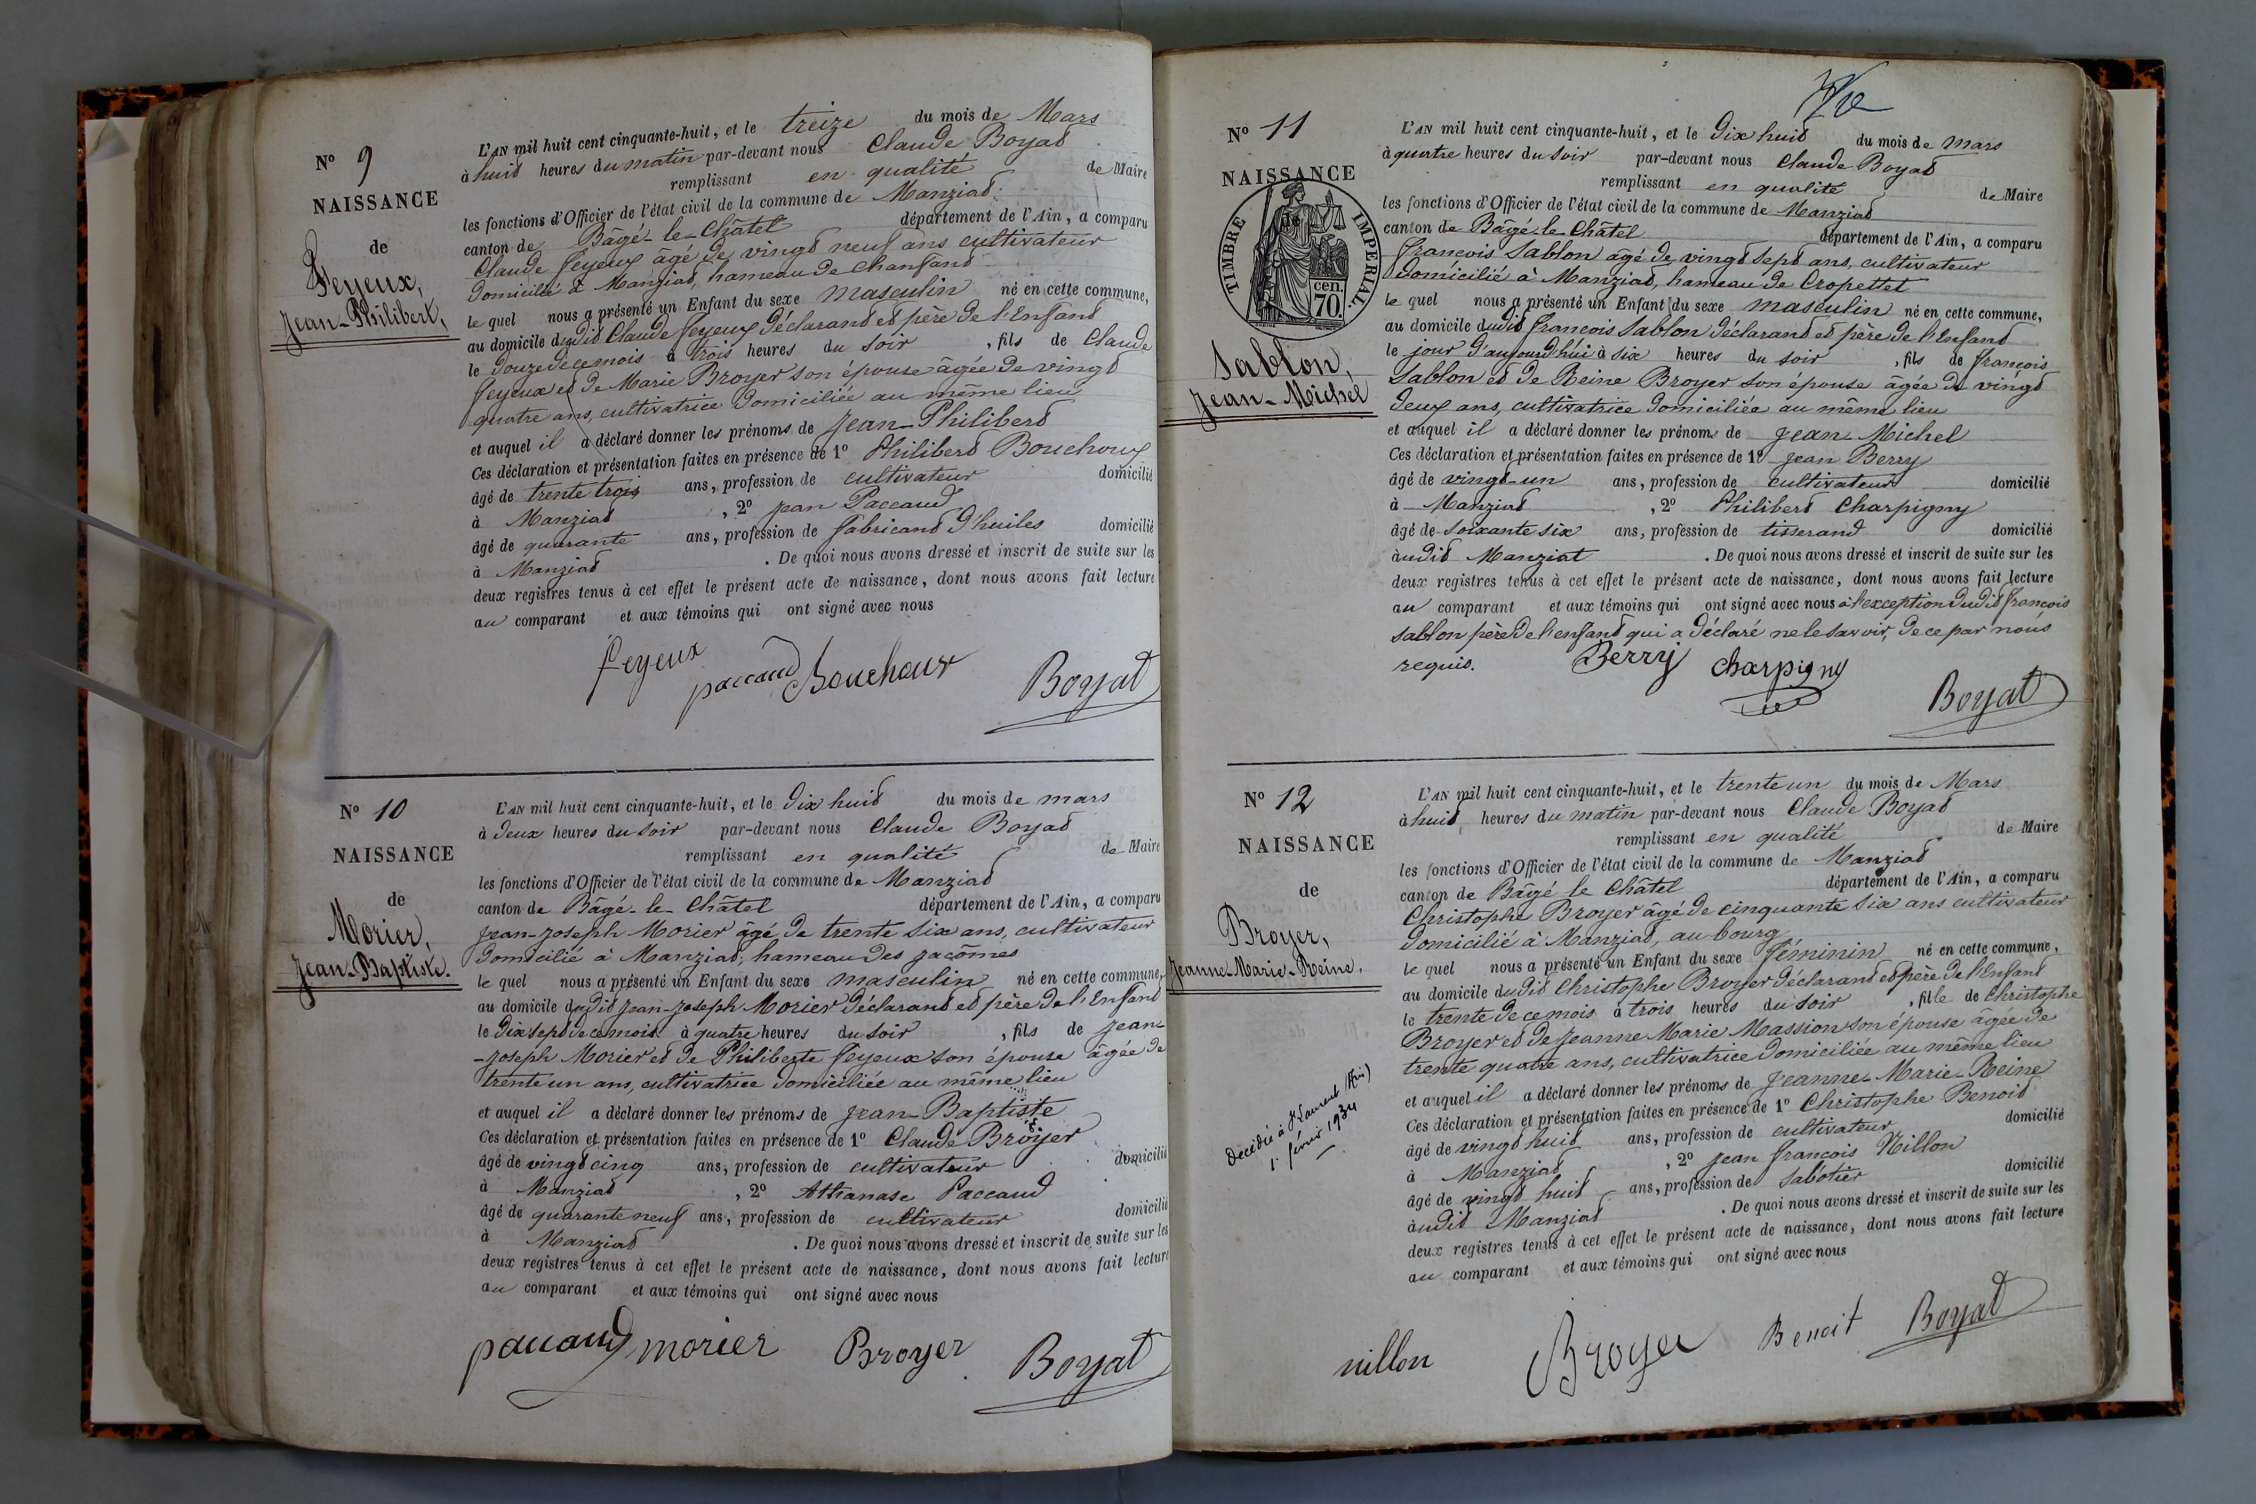 N° 9
NAISSANCE
de
Feyeux,
Jean-Philibert,
L'AN mil huit cent cinquante-huit, et le treize du mois de Mars
à huit heures du matin par-devant nous Claude Boyat
remplissant en qualité de Maire
les fonctions d'Officier de l'état civil de la commune de Manziat
canton de Bâgé-le-Châtel département de l'Ain, a comparu
Claude Feyeux âgé de vingt neuf ans cultivateur
domicilié à Manziat, hameau de Chanfant
le quel nous a présenté un Enfant du sexe masculin né en cette commune,
au domicile dudit Claude Feyeux déclarant et père de l'Enfant
le douze de ce mois à trois heures du soir, fils de Claude
Feyeux et de Marie Broyer son épouse âgée de vingt
quatre ans, cultivatrice domiciliée au même lieu
et auquel il a déclaré donner les prénoms de Jean-Philibert
Ces déclaration et présentation faites en présence de 1° Philibert Bouchoux
âgé de trente trois ans, profession de cultivateur domicilié
à Manziat, 2° Jean Paccaud
âgé de quarante ans, profession de fabricant d'huiles domicilié
à Manziat. De quoi nous avons dressé et inscrit de suite sur les
deux registres tenus à cet effet le présent acte de naissance, dont nous avons fait lecture
au comparant et aux témoins qui ont signé avec nous
feyeux
paccaud Bouchoux
Boyat
N° 10
NAISSANCE
de
Morier,
Jean-Baptiste.
L'AN mil huit cent cinquante-huit, et le dix huit du mois de mars
à deux heures du soir par-devant nous Claude Boyat
remplissant en qualité de Maire
les fonctions d'Officier de l'état civil de la commune de Manziat
canton de Bâgé-le-Châtel département de l'Ain, a comparu
Jean-Joseph Morier âgé de trente six ans, cultivateur
domicilié à Manziat, hameau des Jacômes
le quel nous a présenté un Enfant du sexe masculin né en cette commune,
au domicile dudit Jean-Joseph Morier déclarant et père de l'Enfant
le dix sept de ce mois à quatre heures du soir, fils de Jean-
-Joseph Morier et de Philiberte Feyeux son épouse âgée de
trente un ans, cultivatrice domiciliée au même lieu
et auquel il a déclaré donner les prénoms de Jean-Baptiste
Ces déclaration et présentation faites en présence de 1° Claude Broyer
âgé de vingt cinq ans, profession de cultivateur domicilié
à Manziat, 2° Athanase Paccaud
âgé de quarante neuf ans, profession de cultivateur domicilié
à Manziat. De quoi nous avons dressé et inscrit de suite sur les
deux registres tenus à cet effet le présent acte de naissance, dont nous avons fait lecture
au comparant et aux témoins qui ont signé avec nous
paccaud morier Broyer Boyat
N° 11
NAISSANCE
TIMBRE IMPERIAL.
cen. 70.
Sablon,
Jean-Michel
L'AN mil huit cent cinquante-huit, et le dix huit du mois de mars
à quatre heures du soir par-devant nous Claude Boyat
remplissant en qualité de Maire
les fonctions d'Officier de l'état civil de la commune de Manziat
canton de Bâgé-le-Châtel département de l'Ain, a comparu
François Sablon âgé de vingt sept ans, cultivateur
domicilié à Manziat, hameau de Cropettet
le quel nous a présenté un Enfant du sexe masculin né en cette commune,
au domicile dudit François Sablon déclarant et père de l'Enfant
le jour d'aujourd'hui à six heures du soir, fils de François
Sablon et de Reine Broyer son épouse âgée de vingt
deux ans, cultivatrice domiciliée au même lieu
et auquel il a déclaré donner les prénoms de Jean Michel
Ces déclaration et présentation faites en présence de 1° Jean Berry
âgé de vingt-un ans, profession de cultivateur domicilié
à Manziat, 2° Philibert Charpigny
âgé de soixante six ans, profession de tisserand domicilié
àudit Manziat. De quoi nous avons dressé et inscrit de suite sur les
deux registres tenus à cet effet le présent acte de naissance, dont nous avons fait lecture
au comparant et aux témoins qui ont signé avec nous à l'exception dudit François
Sablon père de l'enfant qui a déclaré ne le savoir, de ce par nous
requis. Berry charpigny
Boyat
N° 12
NAISSANCE
de
Broyer,
Jeanne-Marie-Reine.
Décédée à St Laurent (Ain)
1er février 1934
L'AN mil huit cent cinquante-huit, et le trente un du mois de Mars
à huit heures du matin par-devant nous Claude Boyat
remplissant en qualité de Maire
les fonctions d'Officier de l'état civil de la commune de Manziat
canton de Bâgé le Châtel département de l'Ain, a comparu
Christophe Broyer âgé de cinquante six ans cultivateur
domicilié à Manziat, au bourg
le quel nous a présenté un Enfant du sexe féminin né en cette commune,
au domicile dudit Christophe Broyer déclarant et père de l'Enfant
le trente de ce mois à trois heures du soir, fille de Christophe
Broyer et de Jeanne Marie Massion son épouse âgée de
trente quatre ans, cultivatrice domiciliée au même lieu
et auquel il a déclaré donner les prénoms de Jeanne-Marie-Reine
Ces déclaration et présentation faites en présence de 1° Christophe Benoit
âgé de vingt huit ans, profession de cultivateur domicilié
à Manziat, 2° Jean François Nillon
âgé de vingt huit ans, profession de sabotier domicilié
àudit Manziat. De quoi nous avons dressé et inscrit de suite sur les
deux registres tenus à cet effet le présent acte de naissance, dont nous avons fait lecture
au comparant et aux témoins qui ont signé avec nous
nillon Broyer Benoit Boyat